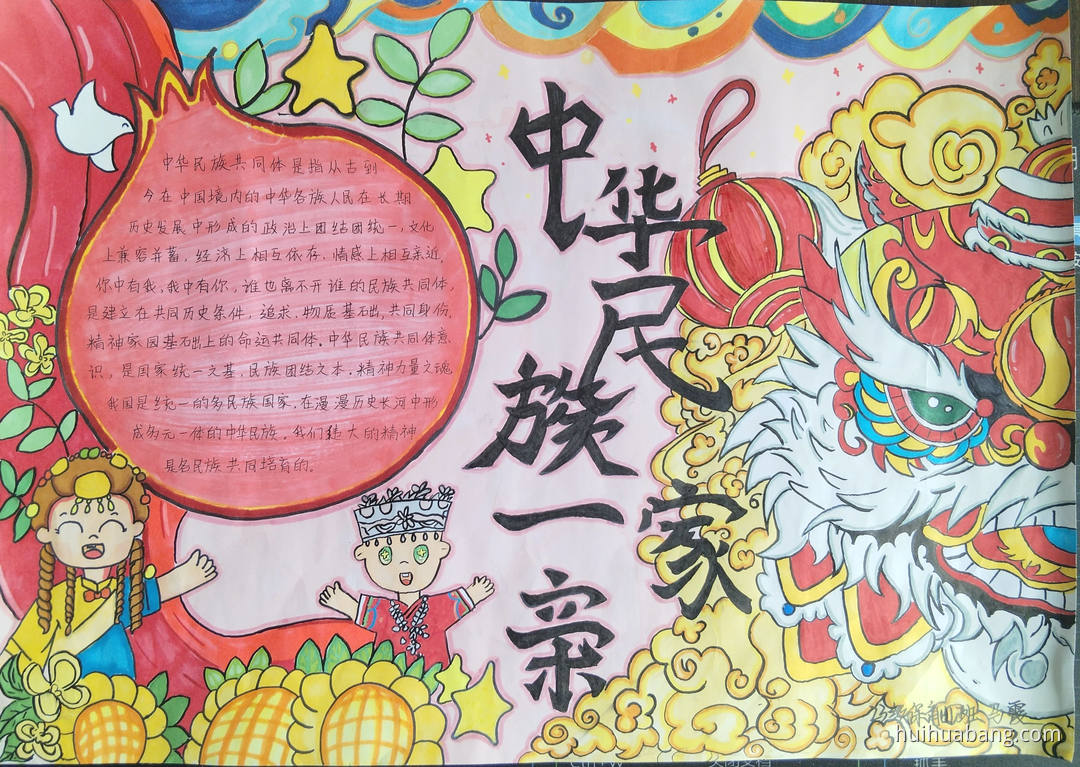 中华民族一家亲
中华民族共同体是指从古到
今在中国境内的中华各族人民在长期
历史发展中形成的政治上团结团统一,文化
上兼容并蓄,经济上相互依存,情感上相互亲近,
你中有我,我中有你,谁也离不开谁的民族共同体,
是建立在共同历史条件,追求,物质基础,共同身份,
精神家园基础上的命运共同体.中华民族共同体意
识,是国家统一之基,民族团结之本,精神力量之魂
我国是统一的多民族国家,在漫漫历史长河中形
成多元一体的中华民族.我们伟大的精神
是各民族共同培育的。
huihuabang.com